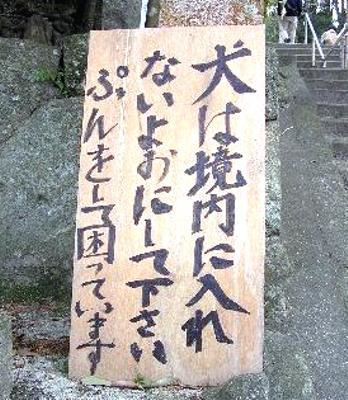 犬は境内に入れ
ないよおにして下さい
ふ°んをして困っています